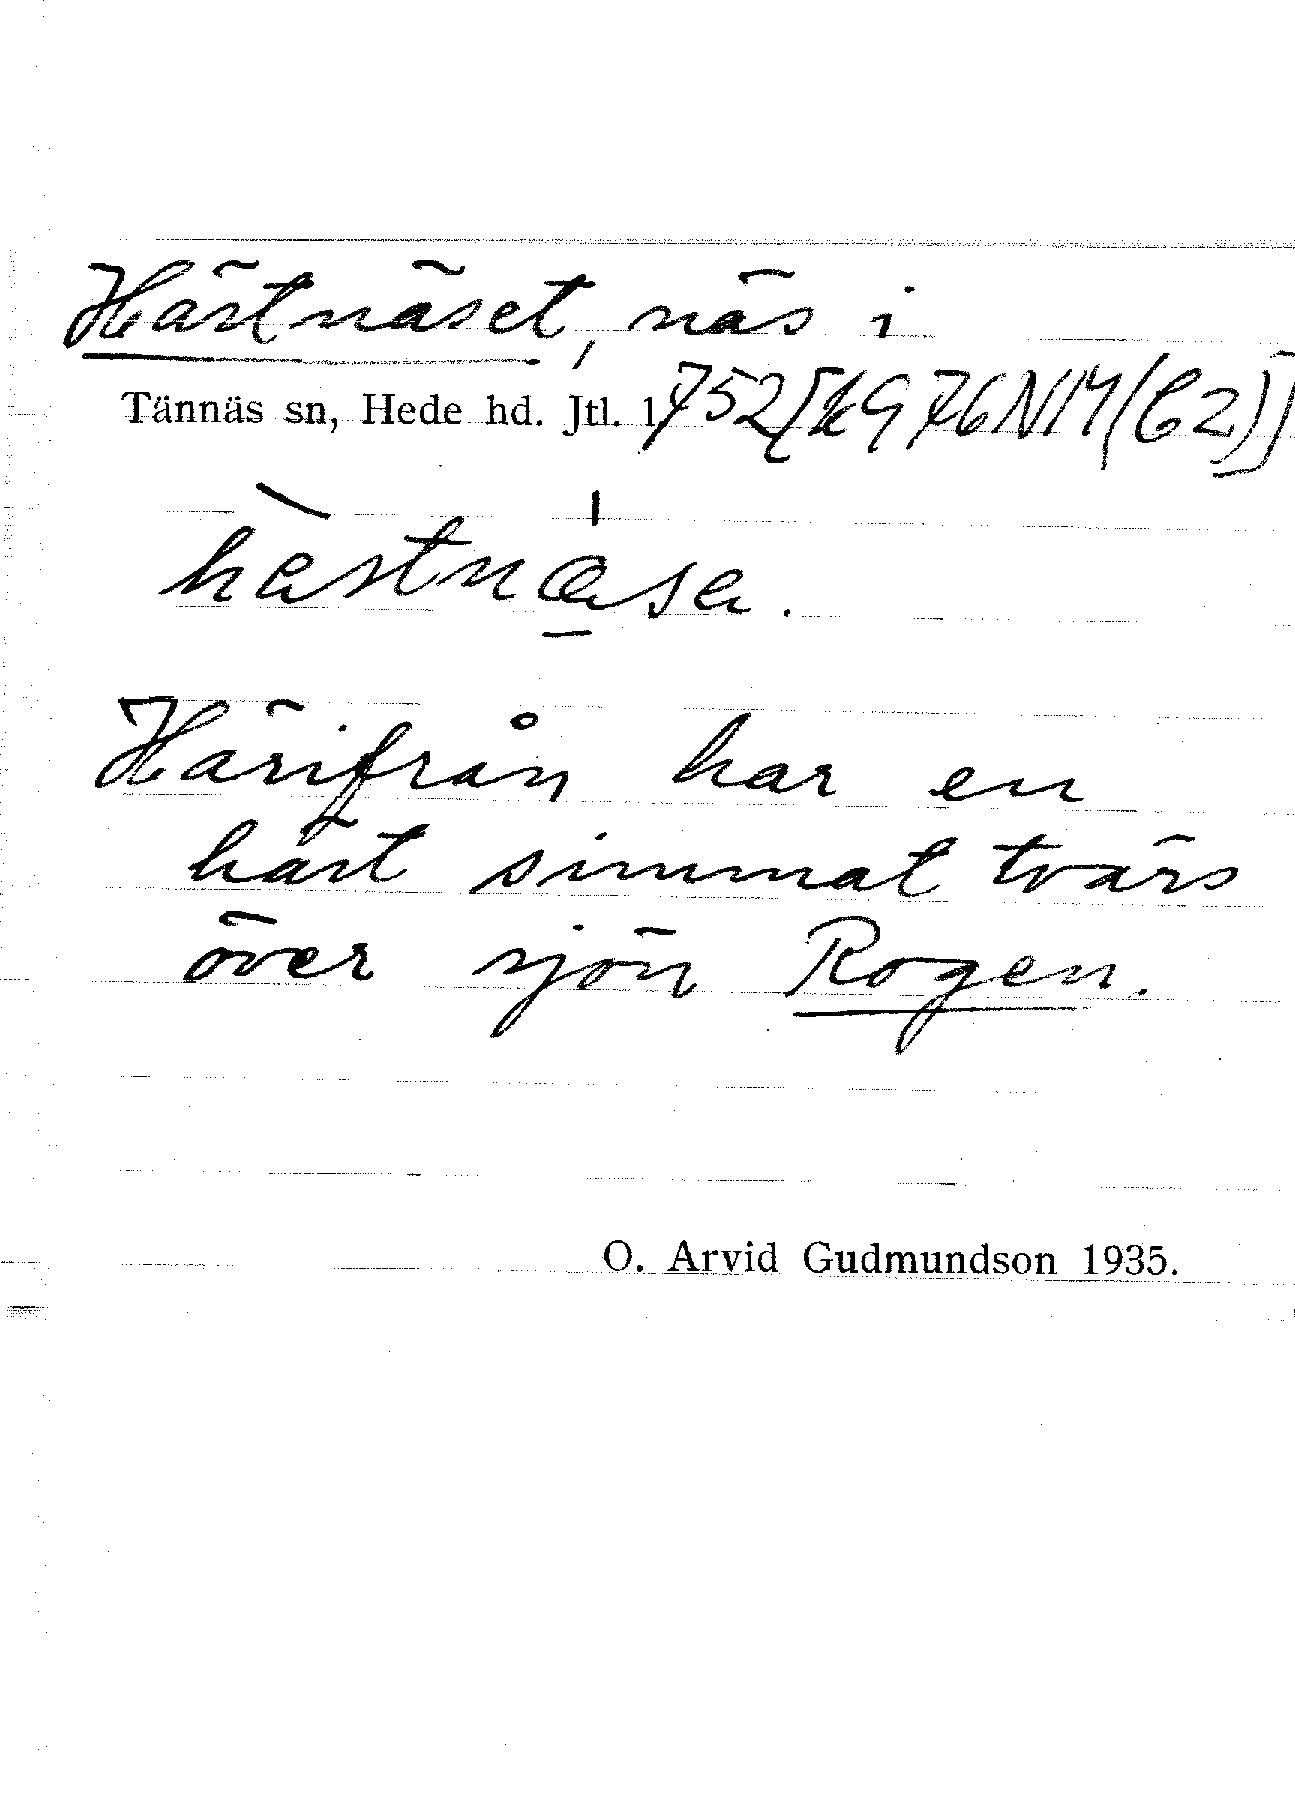 Hästnäset, näs i
Tännäs sn, Hede hd. Jtl. 1752
hèstnæsa.
Härifrån har en
häst simmat tvärs
över sjön Rogen.
O. Arvid Gudmundson 1935.